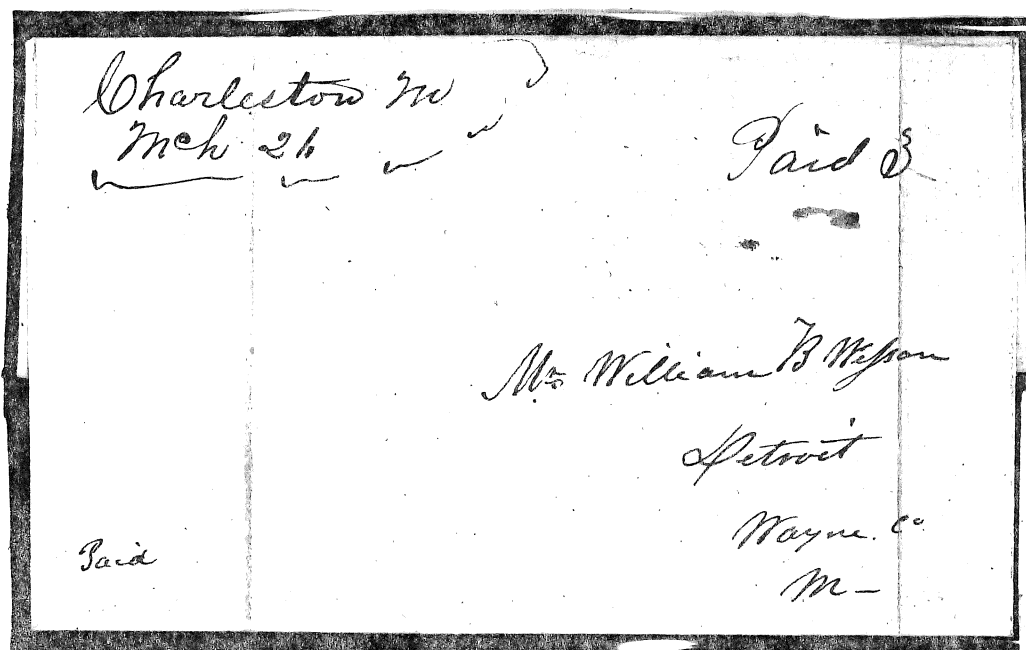 Charleston M
Mch 26
Paid 3
Mr William B Wesson
Detroit
Wayne. Co
M—
Paid